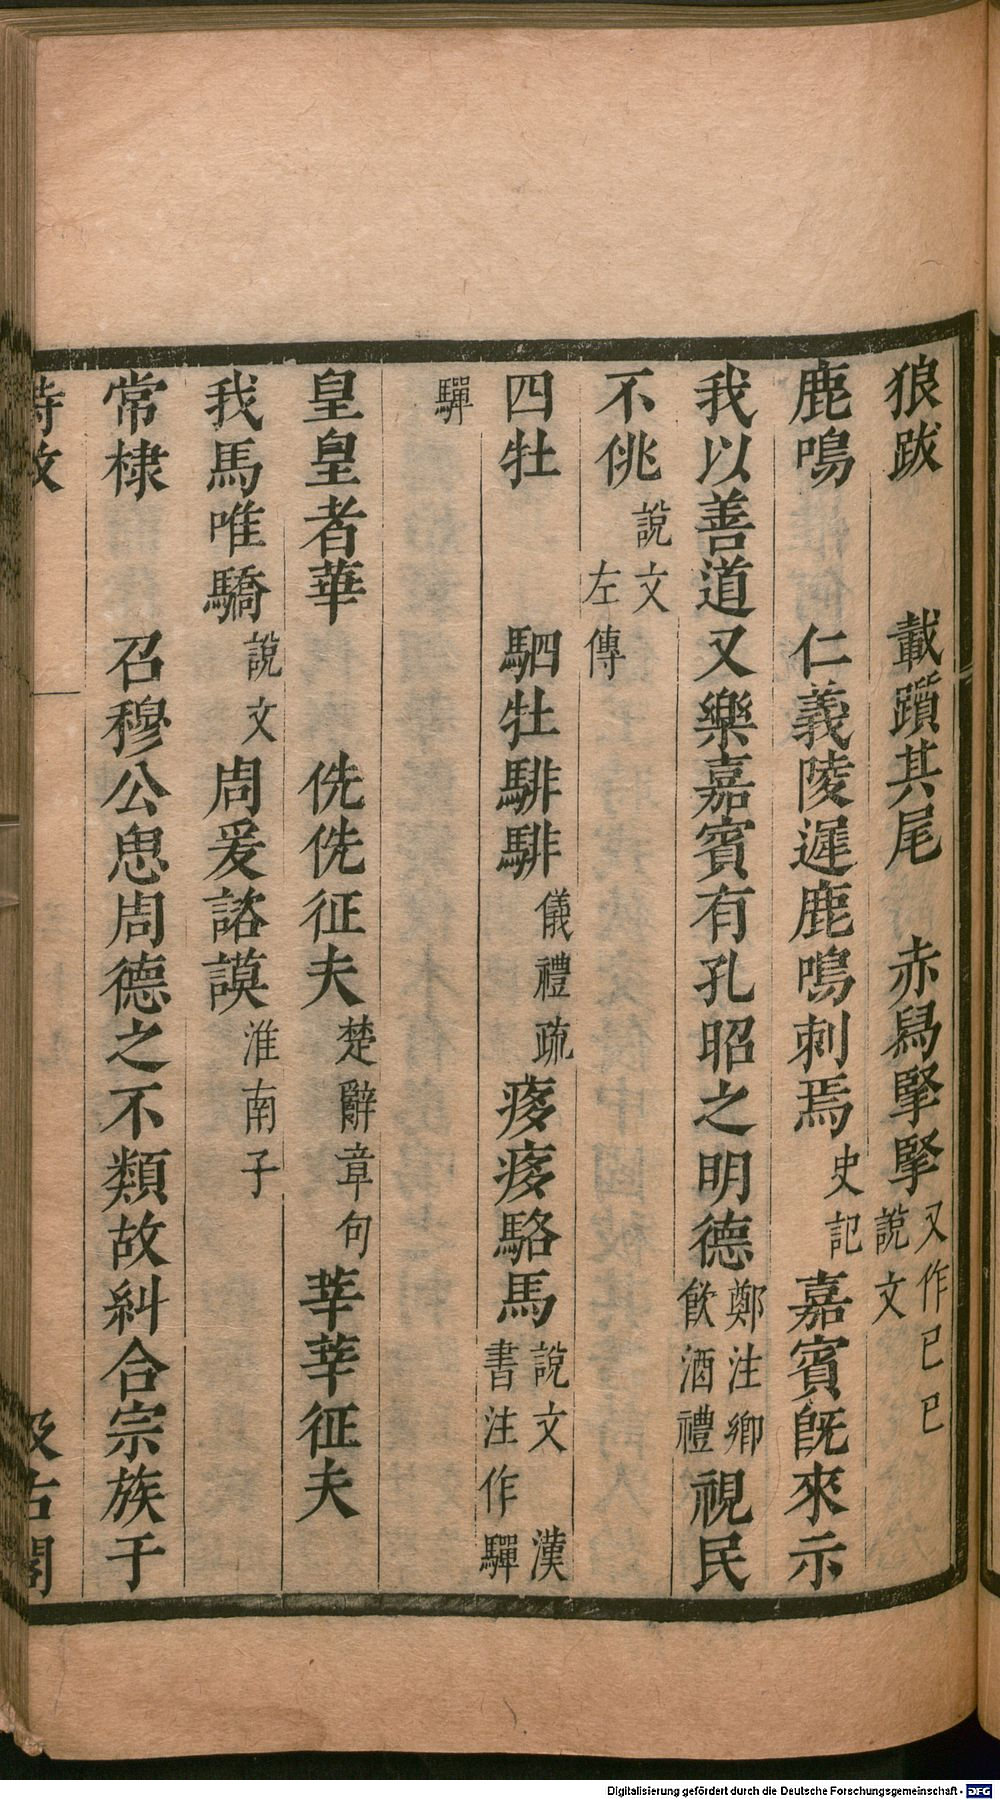 狼跋　載躓其尾　赤舄掔掔又作己己說文
鹿鳴　仁義陵遲鹿鳴刺焉史記嘉賓旣來示
我以善道又樂嘉賓有孔昭之明德鄭注鄉飲酒禮視民
不佻說文左傳
四牡　駟牡騑騑儀禮疏痑痑駱馬說文漢書注作驒
驒
皇皇者華　侁侁征夫楚辭章句莘莘征夫
我馬唯驕說文周爰諮謨淮南子
常棣　召穆公思周德之不類故糾合宗族于
詩攷
汲古閣
Digitalisierung gefördert durch die Deutsche Forschungsgemeinschaft - DFG